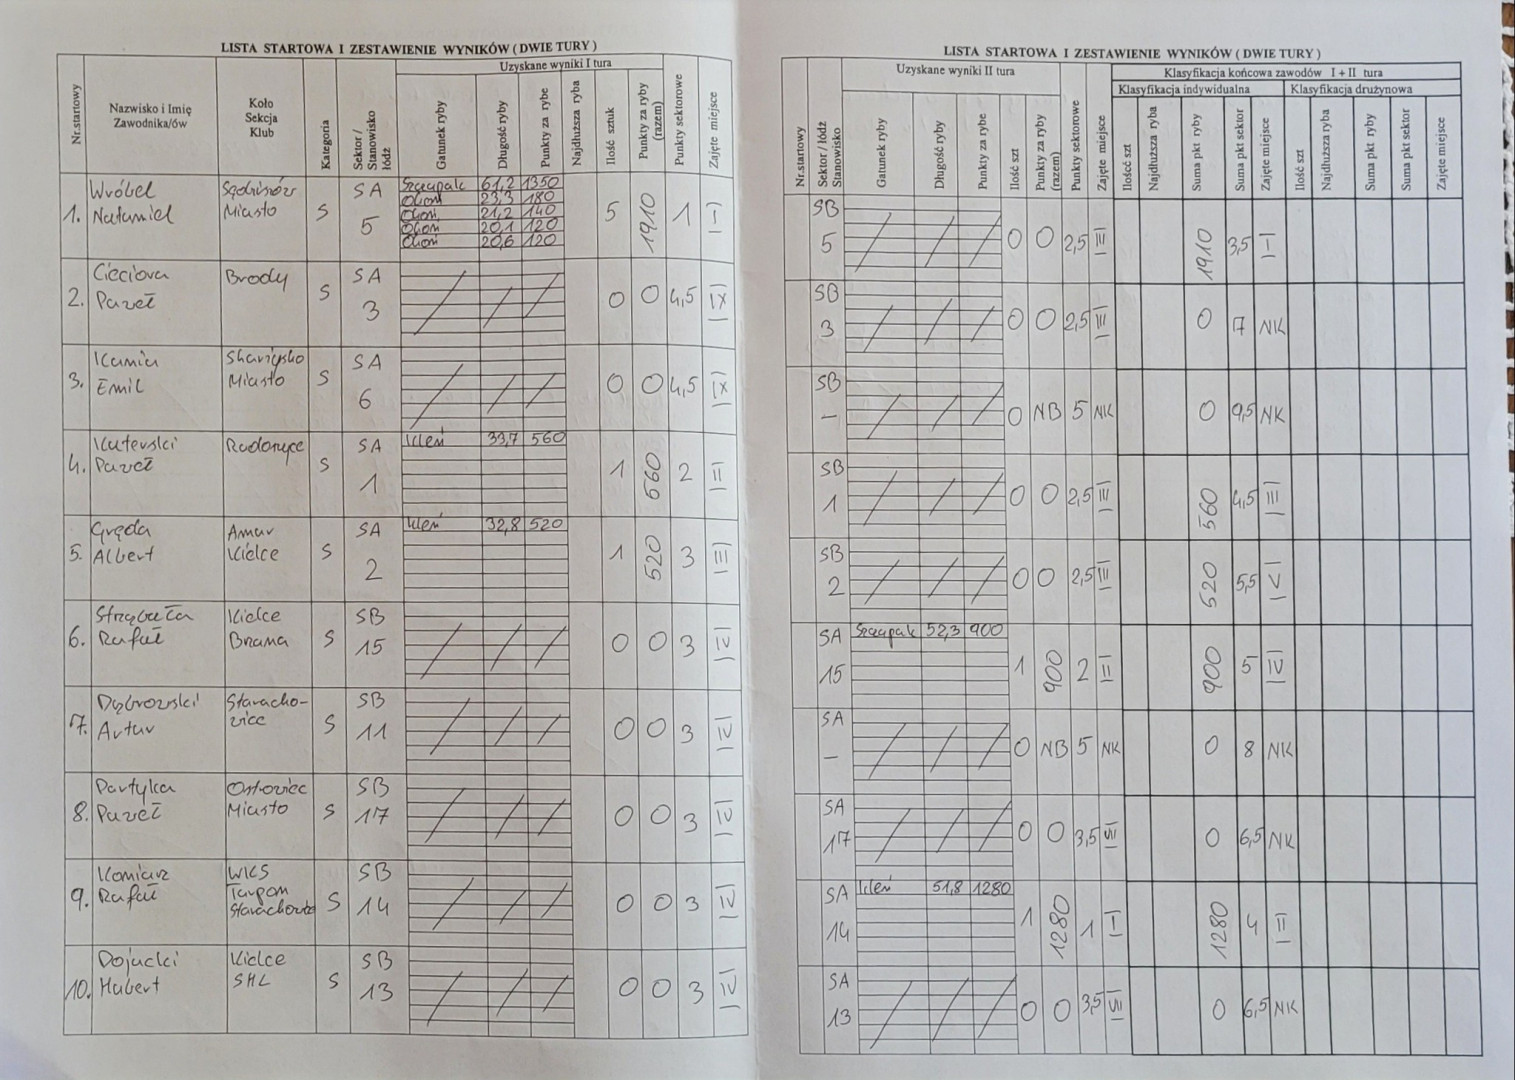 LISTA STARTOWA I ZESTAWIENIE WYNIKÓW ( DWIE TURY )
Nr.startowy
Nazwisko i Imię
Zawodnika/ów
Koło
Sekcja
Klub
Kategoria
Sektor /
Stanowisko
łódź
Uzyskane wyniki I tura
Gatunek ryby
Długość ryby
Punkty za rybe
Najdłuższa ryba
Ilość sztuk
Punkty za ryby
(razem)
Punkty sektorowe
Zajęte miejsce
1. Wróbel Miasto S SA 5
Szczupak 61,2 1350
Okoń 23,3 180
Okoń 21,2 140
Okoń 20,1 120
Okoń 20,6 120
5 1910 1 I
2. Cieciora Paweł Brody S SA 3 0 0 4,5 IX
3. Emil Miasto S SA 6 0 0 4,5 IX
4. Paweł S SA 1 Kleń 33,7 560 1 560 2 II
5. Gręda Albert Amur Kielce S SA 2 Kleń 32,8 520 1 520 3 III
6. Rafał Kielce S SB 15 0 0 3 IV
7. Dąbrowski Artur Staracho-
wice S SB 11 0 0 3 IV
8. Partyka Paweł Ostrowiec Miasto S SB 17 0 0 3 IV
9. Rafał WKS Tarpon S SB 14 0 0 3 IV
10. Hubert Kielce SHL S SB 13 0 0 3 IV
LISTA STARTOWA I ZESTAWIENIE WYNIKÓW ( DWIE TURY )
Nr.startowy
Sektor / łódź
Stanowisko
Uzyskane wyniki II tura
Gatunek ryby
Długość ryby
Punkty za rybe
Ilość szt
Punkty za ryby
(razem)
Punkty sektorowe
Zajęte miejsce
Klasyfikacja końcowa zawodów I + II tura
Klasyfikacja indywidualna
Ilośoć szt
Najdłuższa ryba
Suma pkt ryby
Suma pkt sektor
Zajęte miejsce
Klasyfikacja drużynowa
Ilość szt
Najdłuższa ryba
Suma pkt ryby
Suma pkt sektor
Zajęte miejsce
SB 5 0 0 2,5 III 1910 3,5 I
SB 3 0 0 2,5 III 0 7 NK
SB – 0 NB 5 NK 0 9,5 NK
SB 1 0 0 2,5 III 560 4,5 III
SB 2 0 0 2,5 III 520 5,5 V
SA 15 Szczupak 52,3 900 1 900 2 II 900 5 IV
SA – 0 NB 5 NK 0 8 NK
SA 17 0 0 3,5 VII 0 6,5 NK
SA 14 Kleń 51,8 1280 1 1280 1 I 1280 4 II
SA 13 0 0 3,5 VII 0 6,5 NK